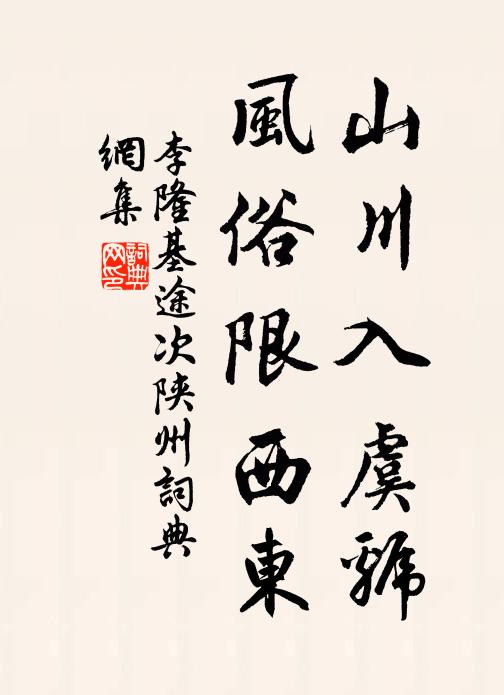 山川入虞虢
風俗限西東
李隆基途次陝州詞典
網集
詞典
网印